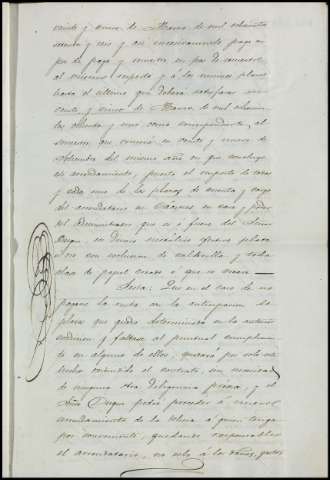 veinte y nueve de Marzo de mil ochocientos
setenta y seis y así sucesivamente paga en
pos de paga y semestre en pos de semestre
al veinte respecto y á los mismos plazos
hasta el último que deberá satisfacer en
veinte y nueve de Marzo de mil ochocien
tos ochenta y uno como correspondiente al
semestre que vencerá en veinte y nueve de
Setiembre del mismo año en que concluye
el arrendamiento, puesto el importe de todas
y cada una de las pagas de cuenta y cargo
del arrendatario en Cáceres en casa y poder
del Administrador que es ó fuere del Señor
Duque, en dinero metálico efectivo plata
ú oro con exclusion de calderilla y toda
clase de papel creado ó que se creare
Sesta: Que en el caso de no
pagarse la renta en la anticipacion de
plazos que queda determinada en la anterior
condicion y faltarse al puntual cumplimien
to en alguno de ellos, quedará por solo este
hecho rescindido el contrato, sin necesidad
de ninguna otra diligencia previa, y el
Señor Duque podrá proceder á nuevo
arrendamiento de la dehesa á quien tenga
por conveniente, quedando responsable
el arrendatario, no solo á los daños, gastos